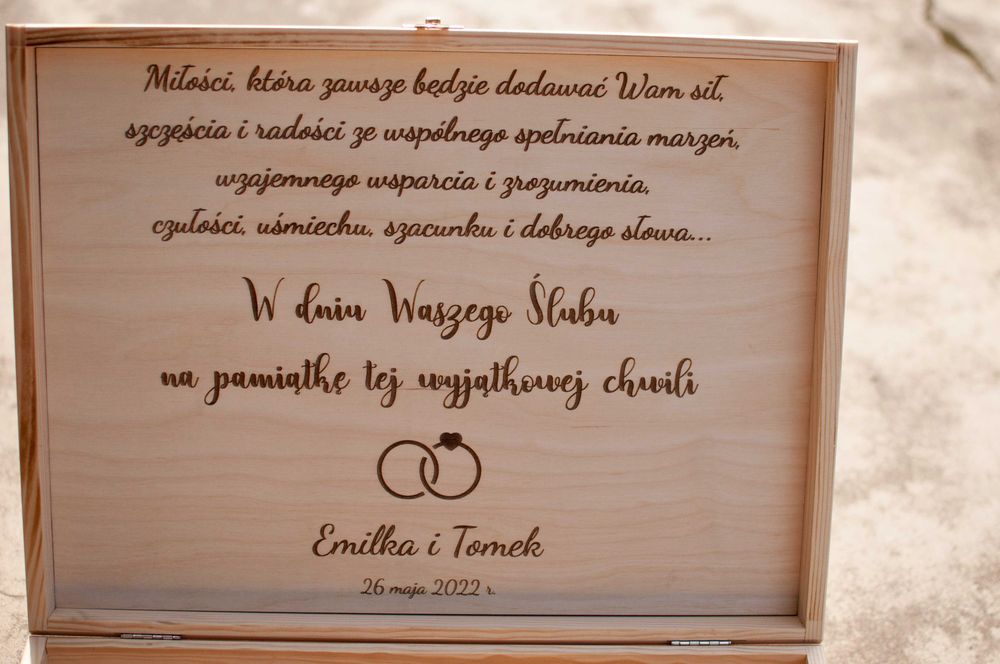 Miłości, która zawsze będzie dodawać Wam sił,
szczęścia i radości ze wspólnego spełniania marzeń,
wzajemnego wsparcia i zrozumienia,
czułości, uśmiechu, szacunku i dobrego słowa...
W dniu Waszego Ślubu
na pamiątkę tej wyjątkowej chwili
Emilka i Tomek
26 maja 2022 r.